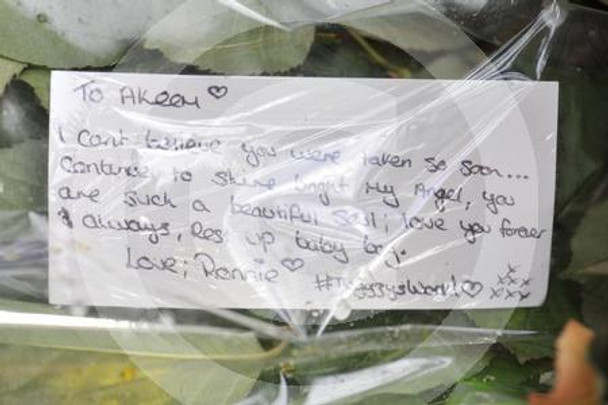 To Akeem ♡
I can't believe you were taken so soon...
Continue to shine bright my Angel, you
are such a beautiful soul; love you forever
& always, Rest up baby boy.
Love; Rennie ♡
xxx